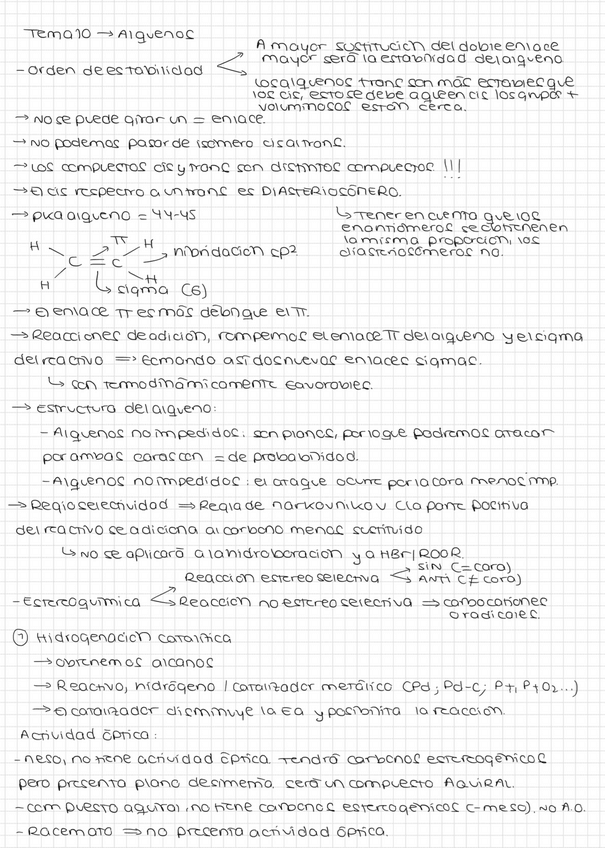 Tema 10 → Alquenos
- Orden de estabilidad
A mayor sustitución del doble enlace
mayor será la estabilidad del alqueno
Los alquenos trans son más estables que
los cis, esto se debe a que en cis los grupos +
voluminosos están cerca.
→ No se puede girar un = enlace.
→ No podemos pasar de isómero cis al trans.
→ Los compuestos cis y trans son distintos compuestos !!!
→ El cis respecto a un trans es DIASTERIOSÓMERO.
→ pka alqueno = 44-45
↳ Tener en cuenta que los
enantiómeros se obtienenen
la misma proporción, los
diasteriosómeros no.
H π H
C = C → hibridación sp2
H H
↳ sigma (6)
→ El enlace π es más débil que el π.
→ Reacciones de adición, rompemos el enlace π del alqueno y el sigma
del reactivo ⇒ formando así dos nuevos enlaces sigmas.
↳ son termodinámicamente favorables.
→ Estructura del alqueno:
- Alquenos no impedidos: son planos, por lo que podremos atacar
por ambas caras con = de probabilidad.
- Alquenos no impedidos: el ataque ocurre por la cara menos imp.
→ Regioselectividad ⇒ Regla de Markovnikov (la parte positiva
del reactivo se adiciona al carbono menos sustituido
↳ No se aplicará a la hidroboración y a HBr/ROOR.
- Estereoquímica
Reacción estereoselectiva
SIN (= cara)
ANTI (≠ cara)
Reacción no estereoselectiva ⇒ carbocationes
o radicales.
① Hidrogenación catalítica
→ obtenemos alcanos
→ Reactivo, hidrógeno / catalizador metálico (Pd; Pd-C; Pt, PtO2...)
→ El catalizador disminuye la Ea y posibilita la reacción.
Actividad óptica:
- Meso, no tiene actividad óptica. Tendrá carbonos estereogénicos
pero presenta plano de simetría. será un compuesto AQUIRAL.
- compuesto aquiral, no tiene carbonos estereogénicos (-meso). NO A.O.
- Racemato ⇒ no presenta actividad óptica.